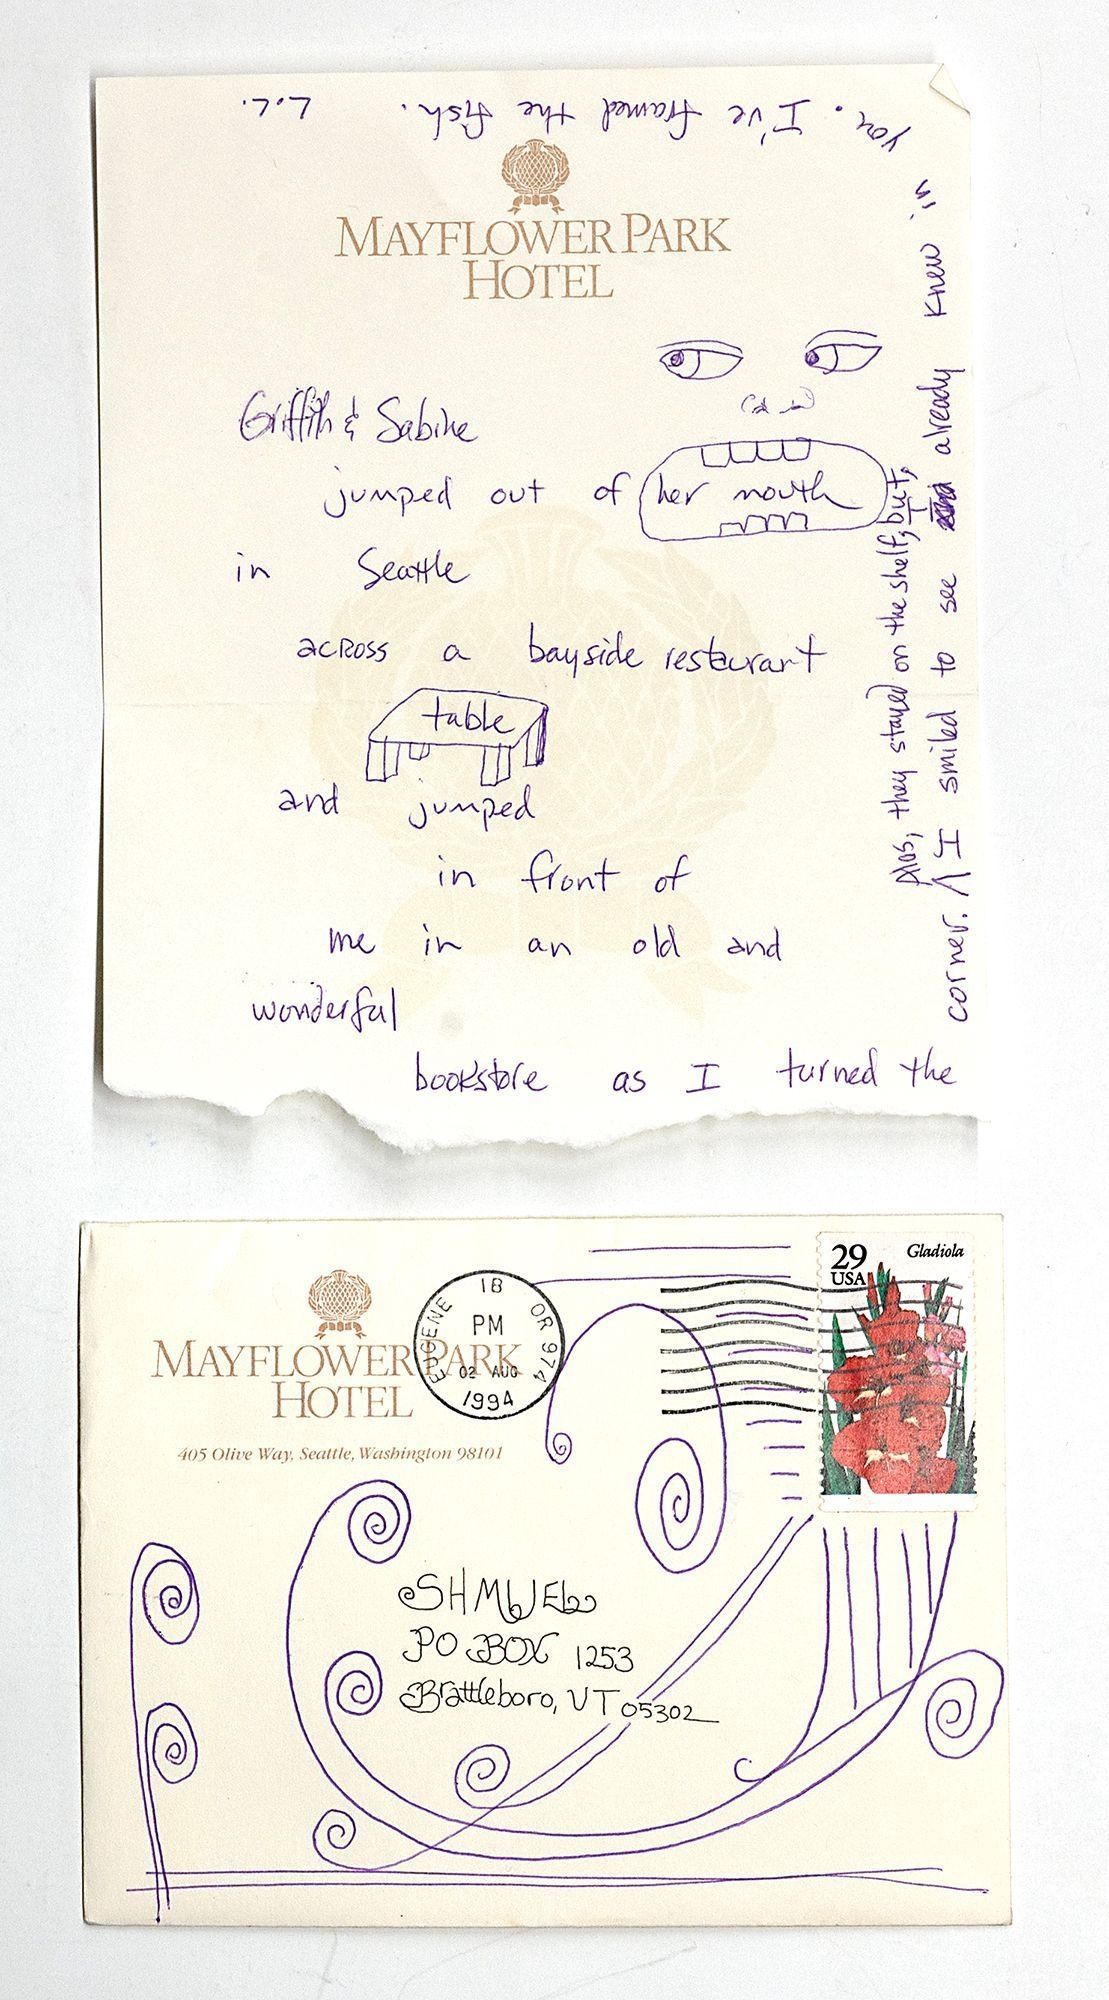 MAYFLOWER PARK
HOTEL
Griffith & Sabine
jumped out of her mouth
in Seattle
across a bayside restaurant
table
and jumped
in front of
me in an old and
wonderful
bookstore as I turned the
corner. ^ I smiled to see I already knew
Alas, they stayed on the shelf; but,
you. I've framed the fish.
L.C.
MAYFLOWER PARK
HOTEL
405 Olive Way, Seattle, Washington 98101
EUGENE OR 974
18
PM
02 AUG
1994
29
USA
Gladiola
SHMUEL
PO BOX 1253
Brattleboro, VT 05302